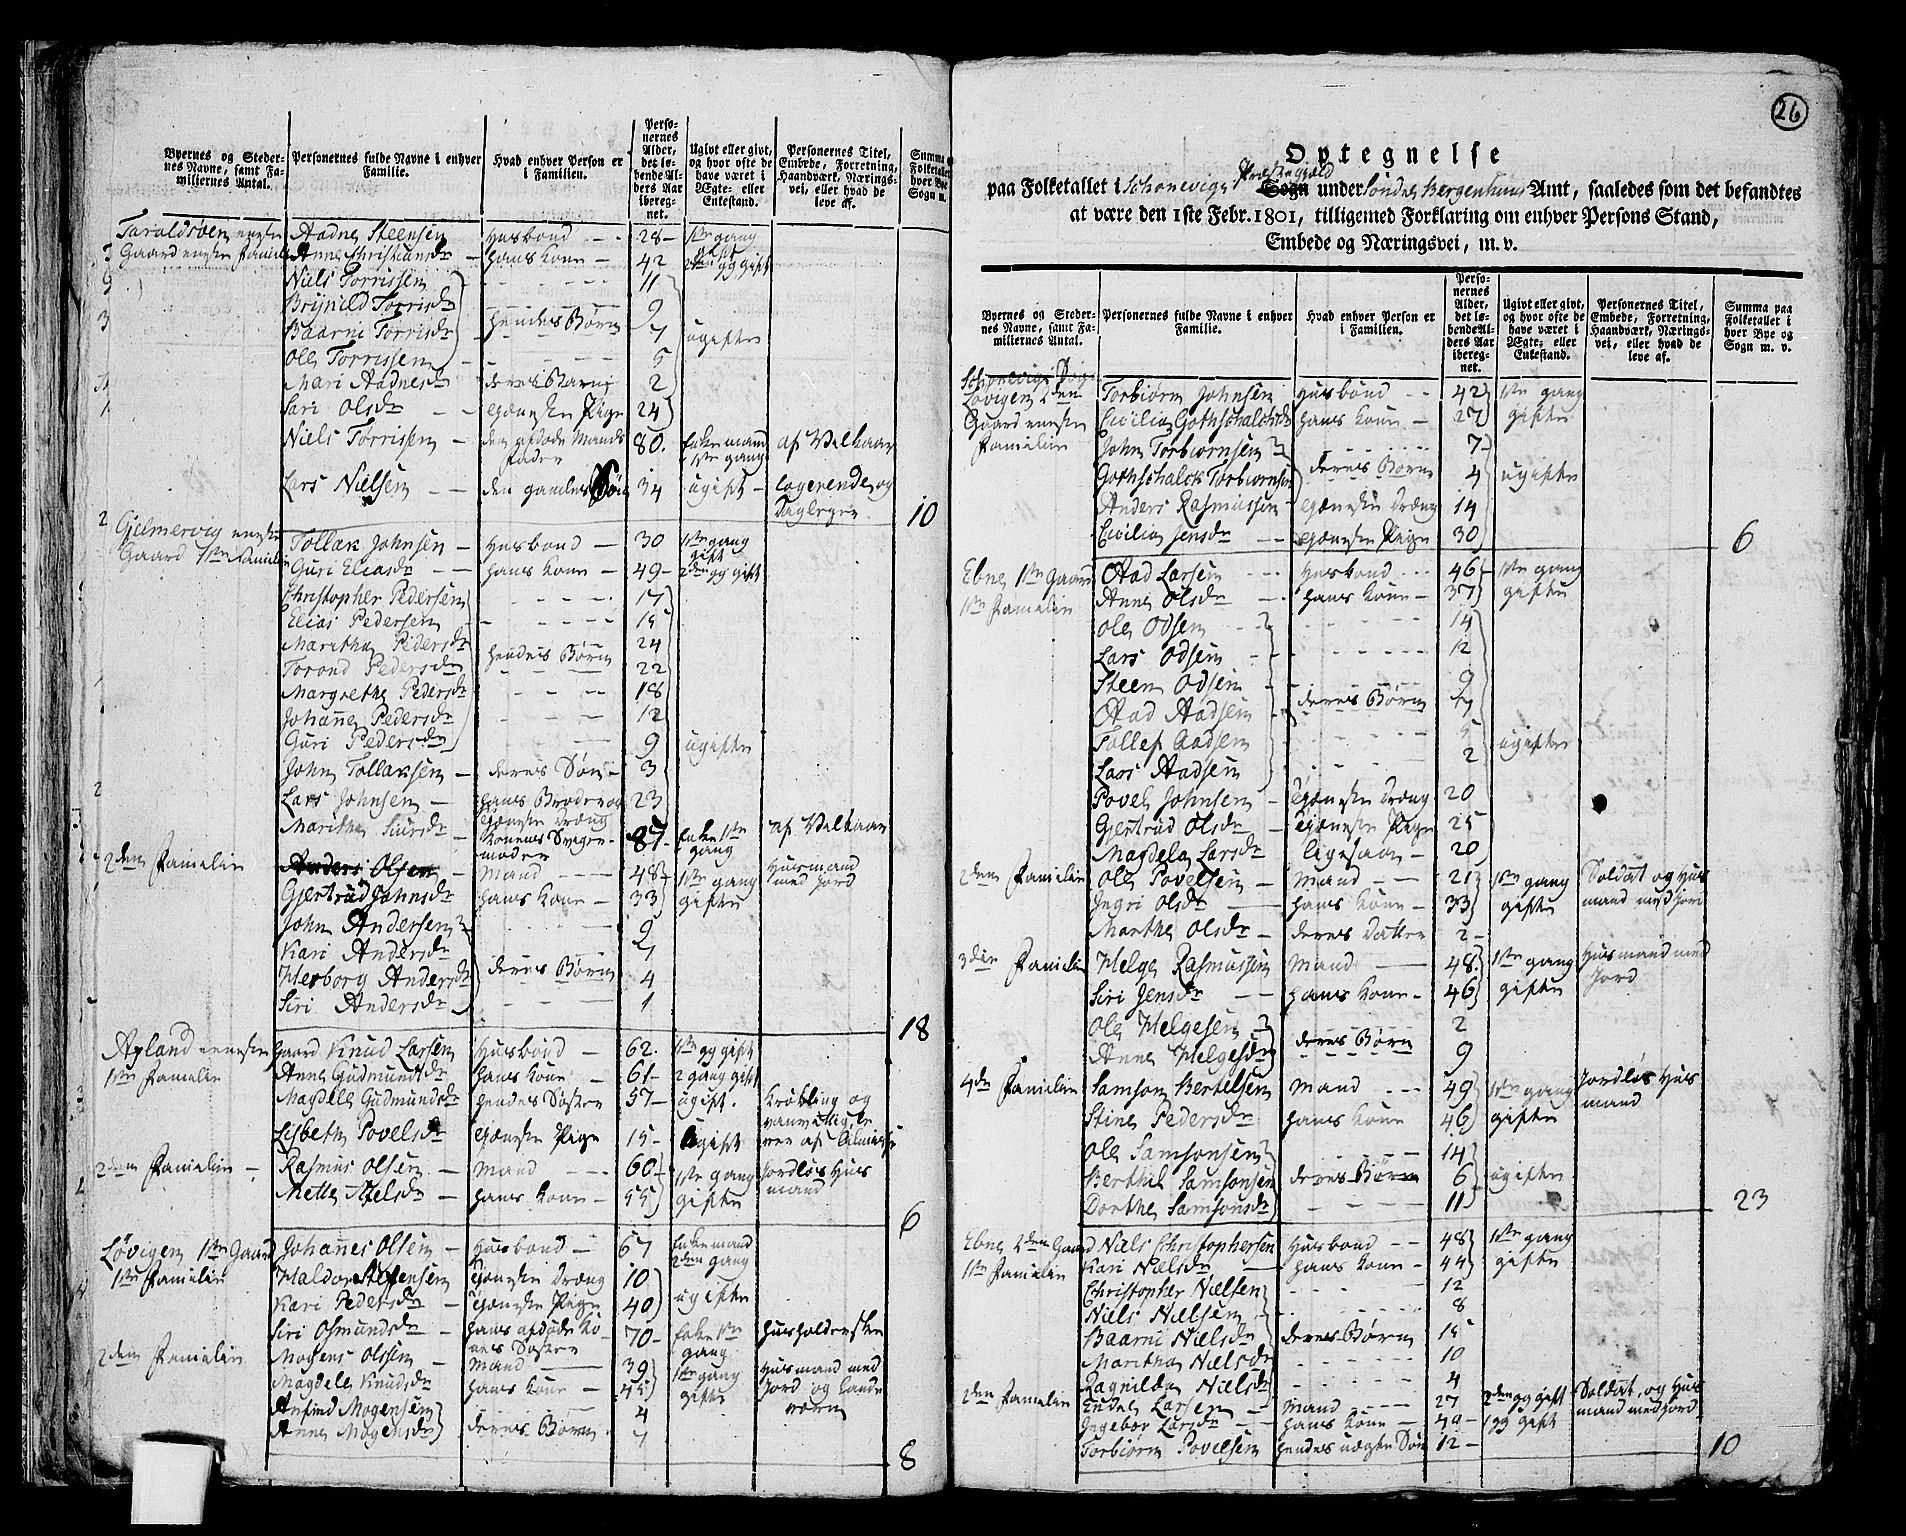 Byernes og Steder-
nes Navne, samt Fa-
miliernes Antal.
Personernes fulde Navne i enhver
Familie.
Hvad enhver Person er
i Familien.
Perso-
nernes
Alder,
det lø-
bende Al-
ders Aar
ibereg-
net.
Ugivt eller givt,
og hvor ofte de
have været i
Ægte- eller
Enkestand.
Personernes Titel,
Embede, Forretning,
Haandværk, Nærings-
vei, eller hvad de
leve af.
Summa
Folketallet
hver Bye
Sogn m.
Taraldsøen eneste Aadne Steensen Husbond 28 1ste gang
Gaard eneste Familie Anne Christiansdr hans Kone 42 2den gg gift
Niels Torrissen 11
Brynild Torrisdr 9
Baarni Torrisdr hendes Børn 7 ugifte
Ole Torrissen 5
Mari Aadnesdr deres Barn 2
Siri Olsdr tjeneste Pige 24
Niels Torrissen den afdøde Mands 80 Enkemand af Vilkaar
Fader 1ste gang
Lars Nielsen den gamles Søn 34 ugift logerende og
Dagleyer 10
Gjelmervig eneste Tollak Johnsen Husbond 30 1ste gang
Gaard 1ste Familie gift
Guri Eliasdr hans Kone 49 2den gg gift
Christopher Pedersen 17
Elias Pedersen 15
Maritha Pedersdr 24
Torond Pedersdr hendes Børn 22
Margrethe Pedersdr 18
Johanne Pedersdr 12
Guri Pedersdr 9 ugifte
John Tollaksen deres Søn 3
Lars Johnsen hans Broder og 23
tjeneste Dreng
Maritha Siursdr Konens Svoger- 87 Enke 1ste af Vilkaar
moder gang
2den Familie Anders Olsen Mand 48 1ste gang Husmand
Gjertrud Johnsdr hans Kone 33 gifte med Jord
John Andersen 9
Kari Andersdr 7
Herborg Andersdr deres Børn 4
Siri Andersdr 1
18
Axland eneste Gaard Knud Larsen Husbond 62 1ste gg gift
1ste Familie Anne Gudmundsdr hans Kone 61 2 gang gift
Magdele Gudmundsdr hendes Søster 57 ugift Krøbling og
Lisbeth Povelsdr tjeneste Pige 15 ugift
2den Familie Rasmus Olsen Mand 60 1ste gang Jordløs Hus
Mette hans Kone 55 gifte mand
6
Løvigen 1ste Gaard Johanes Olsen Husbond 67 Enkemand
1ste Familie 2den gang
Haldor Steffensen tjeneste Dreng 10
Kari Pedersdr tjeneste Pige 40 ugifte
Siri Osmundsdr hans afdøde Ko- 70 Enke 1ste Husholderske
nes Søster gang
2den Familie Mogens Olsen Mand 39 1ste gang Husmand med
Magdele Knudsdr hans Kone 45 gifte Jord og Lande
værn
Anfind Mogensen 4
Anne Mogensdr deres Børn 7
8
26
Optegnelse
paa Folketallet i Schonevigs Præstegield Sogn under Søndre Bergenhuus Amt, saaledes som det befandtes
at være den 1ste Febr. 1801, tilligemed Forklaring om enhver Persons Stand,
Embede og Næringsvei, m. v.
Byernes og Steder-
nes Navne, samt Fa-
miliernes Antal.
Personernes fulde Navne i enhver
Familie.
Hvad enhver Person er
i Familien.
Perso-
nernes
Alder,
det lø-
bende Al-
ders Aar
ibereg-
net.
Ugivt eller givt,
og hvor ofte de
have været i
Ægte- eller
Enkestand.
Personernes Titel,
Embede, Forretning,
Haandværk, Nærings-
vei, eller hvad de
leve af.
Summa paa
Folketallet i
hver Bye og
Sogn m. v.
Schonevigs Sogn
Løvigen 2den Torbiørn Johnsen Husbond 42 1ste gang
Gaard eneste Cicilia Gothschalcksdr hans Kone 27 gifte
Familie John Torbiørnsen 7
Gothschalck Torbiørnsen deres Børn 4 ugifte
Anders Rasmussen tjeneste Dreng 14
Cicilia Jensdr tjeneste Pige 30
6
Ebne 1ste Gaard Aad Larsen Husbond 46 1ste gang
1ste Familie Anne Olsdr hans Kone 37 gifte
Ole Odsen 14
Lars Odsen 12
Steen Odsen 9
Aad Aadsen deres Børn 7
Tollef Aadsen 5 ugifte
Lars Aadsen 2
Povel Johnsen tjeneste Dreng 20
Gjertrud Olsdr tjeneste Pige 25
Magdela Larsdr ligesaa 20
2den Familie Ole Povelsen Mand 21 1ste gang Soldat og Hus
Ingri Olsdr hans Kone 33 gifte mand med Jord
Marthe Olsdr deres Datter 2
3die Familie Helge Rasmussen Mand 48 1ste gang Husmand med
Siri Jensdr hans Kone 46 gifte Jord
Ole Helgesen 2
Anne Helgesdr deres Børn 9
4de Familie Samson Bertelsen Mand 49 1ste gang Jordløs Hus
Stine Pedersdr hans Kone 46 gifte mand
Ole Samsonsen 14
Berthel Samsonsen deres Børn 6 ugifte
Dorthe Samsonsdr 11
23
Ebne 2den Gaard Niels Christophersen Husbond 48 1ste gang
1ste Familie Kari Nielsdr hans Kone 44 gifte
Christopher Nielsen 12
Niels Nielsen 8
Baarni Nielsdr deres Børn 15
Maritha Nielsdr 10
Ragnilda Nielsdr 4
2den Familie Endre Larsen Mand 27 2den gg gift Soldat og Hus
Ingebor Larsdr hans Kone 40 1 gg gift mand med Jord
Torbiørn Povelsen hendes uægte Søn 12
10